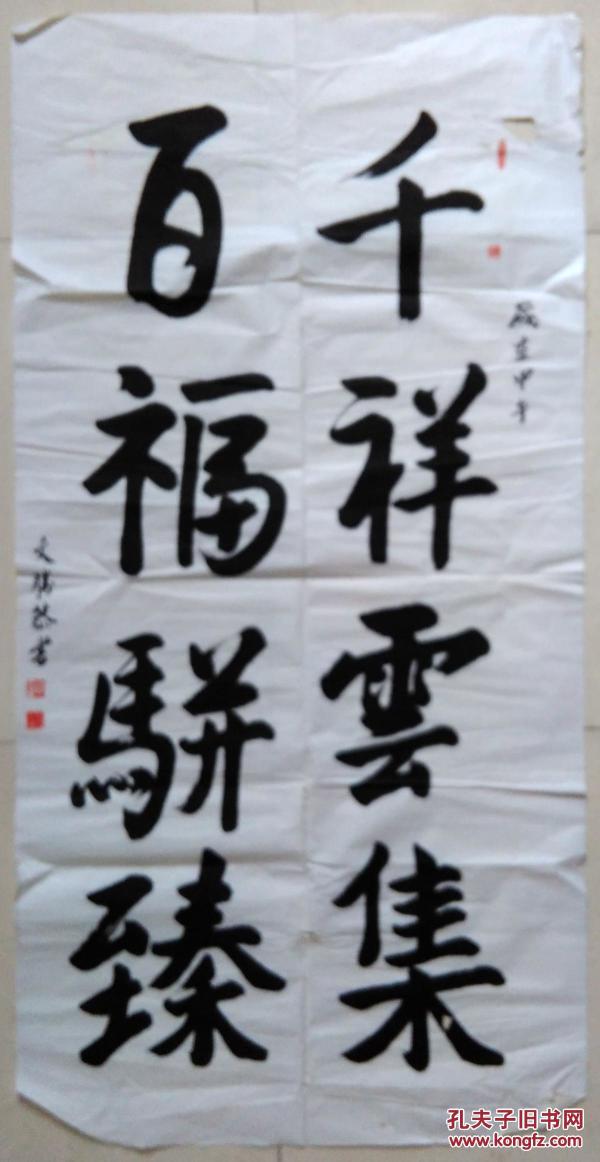 千祥雲集
百福駢臻
歲在甲午
孔夫子旧书网
www.kongfz.com